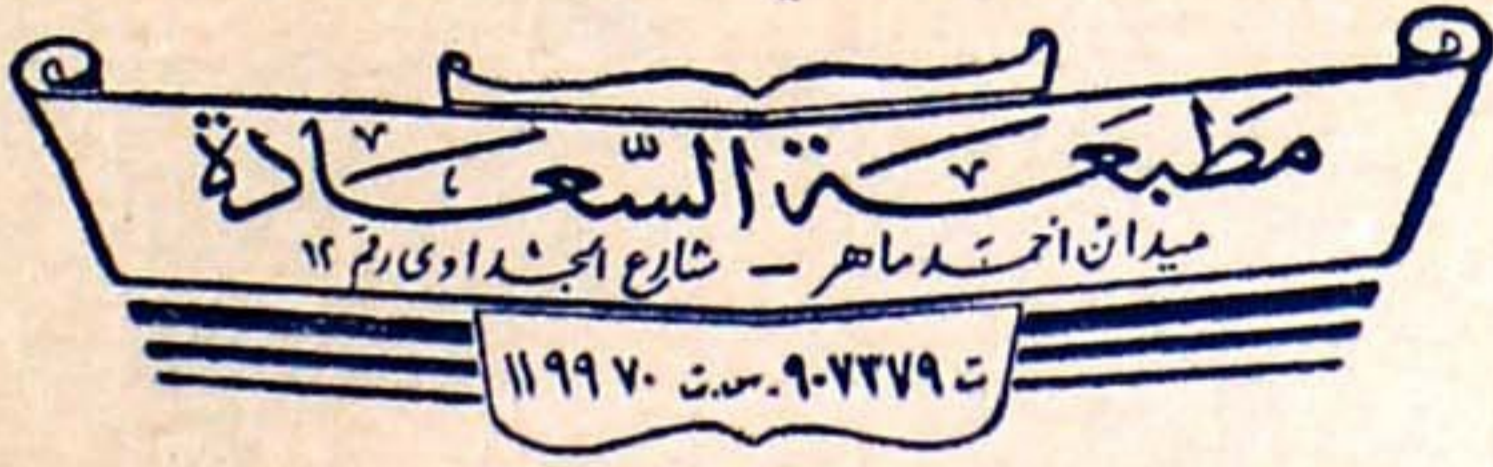 مطبعة السعادة
ميدان أحمد ماهر – شارع الجداوى رقم ١٢
ت ٩٠٧٣٧٩ . س.ت ١١٩٩٧٠